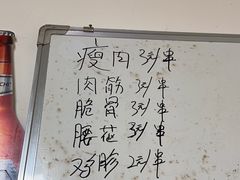 瘦肉 3元/串
肉筋 3元/串
脆骨 3元/串
腰花 3元/串
鸡胗 2元/串